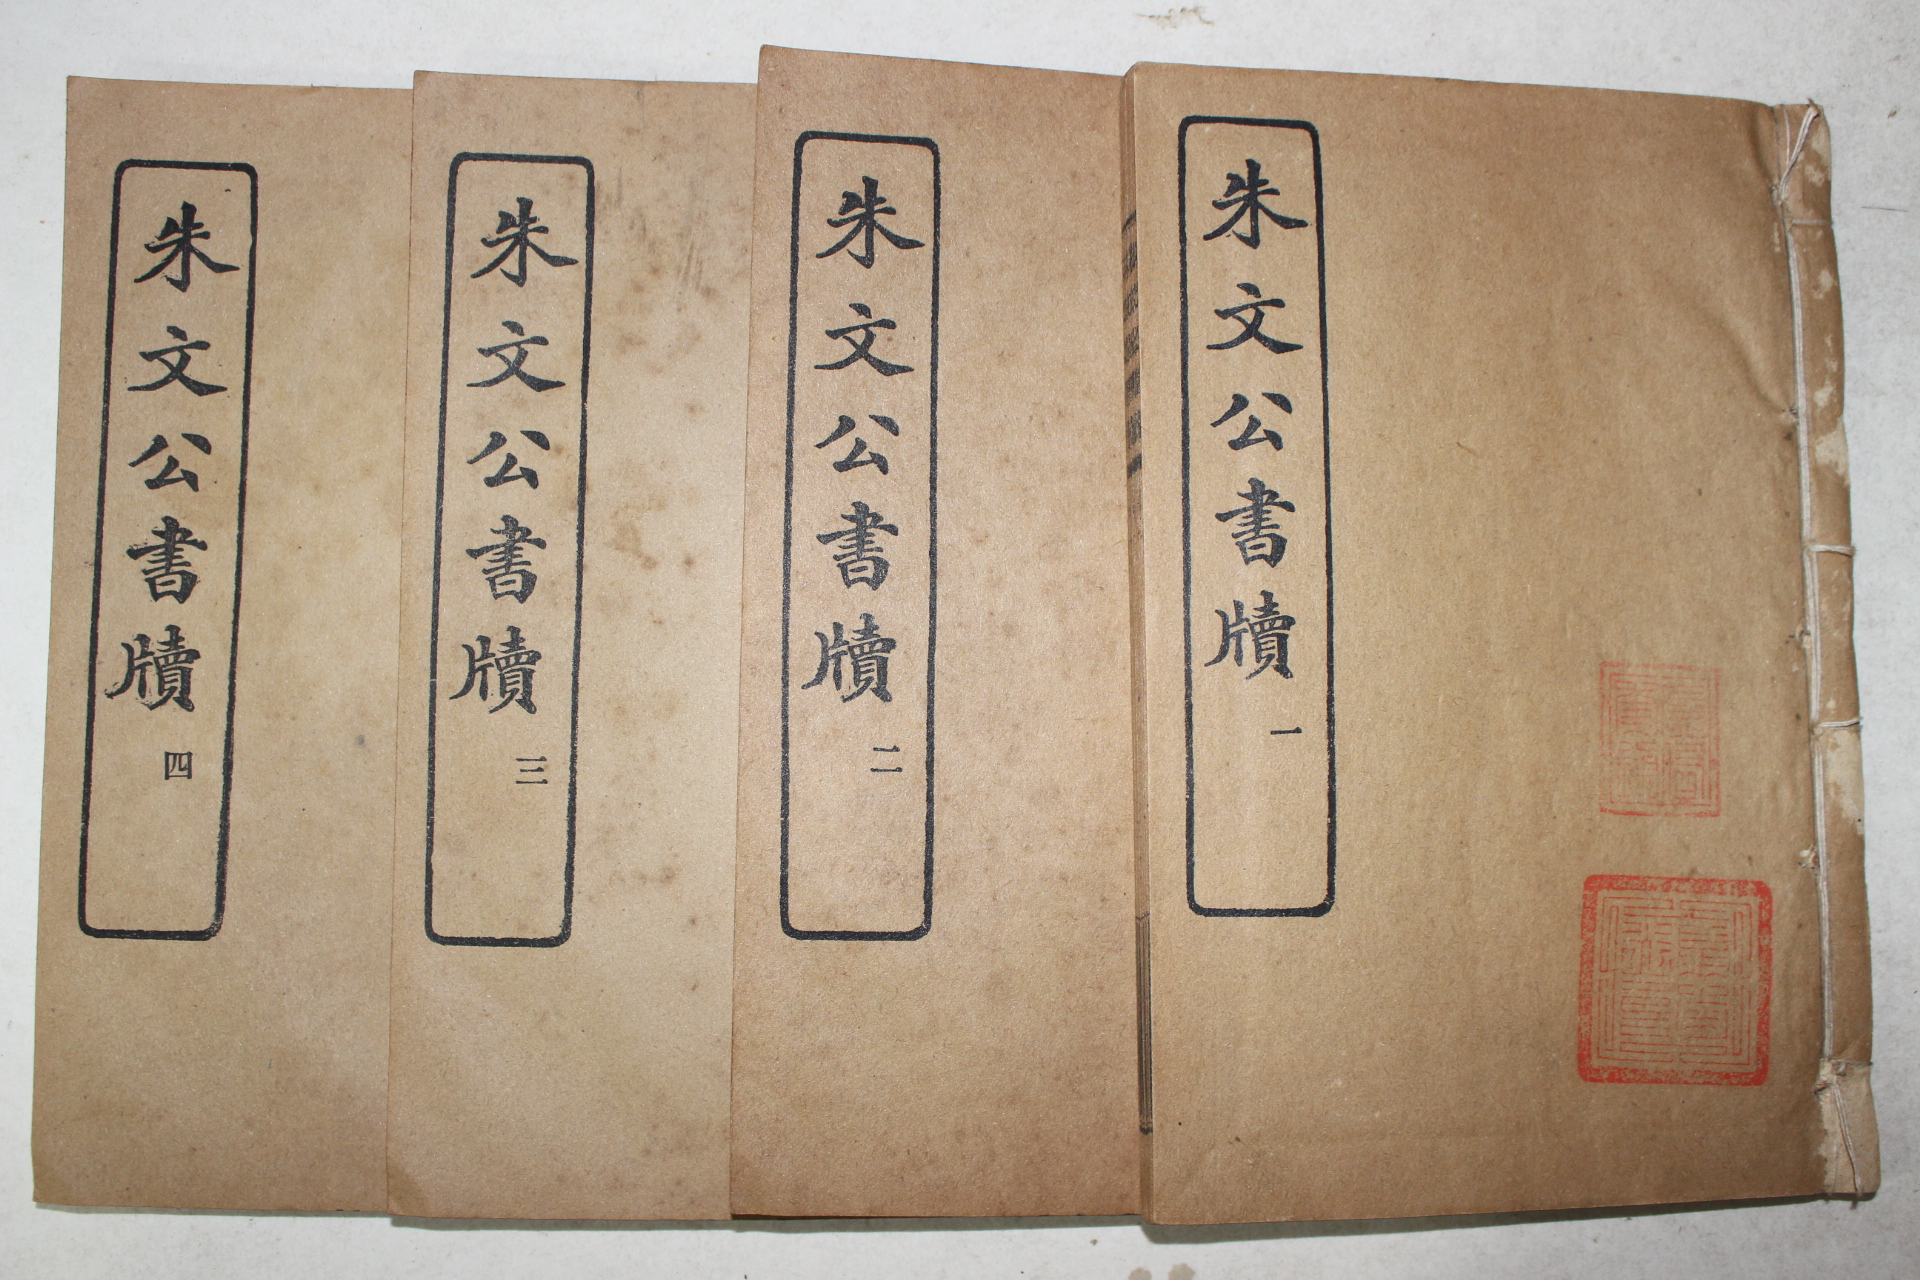 朱文公書牘 一
朱文公書牘 二
朱文公書牘 三
朱文公書牘 四